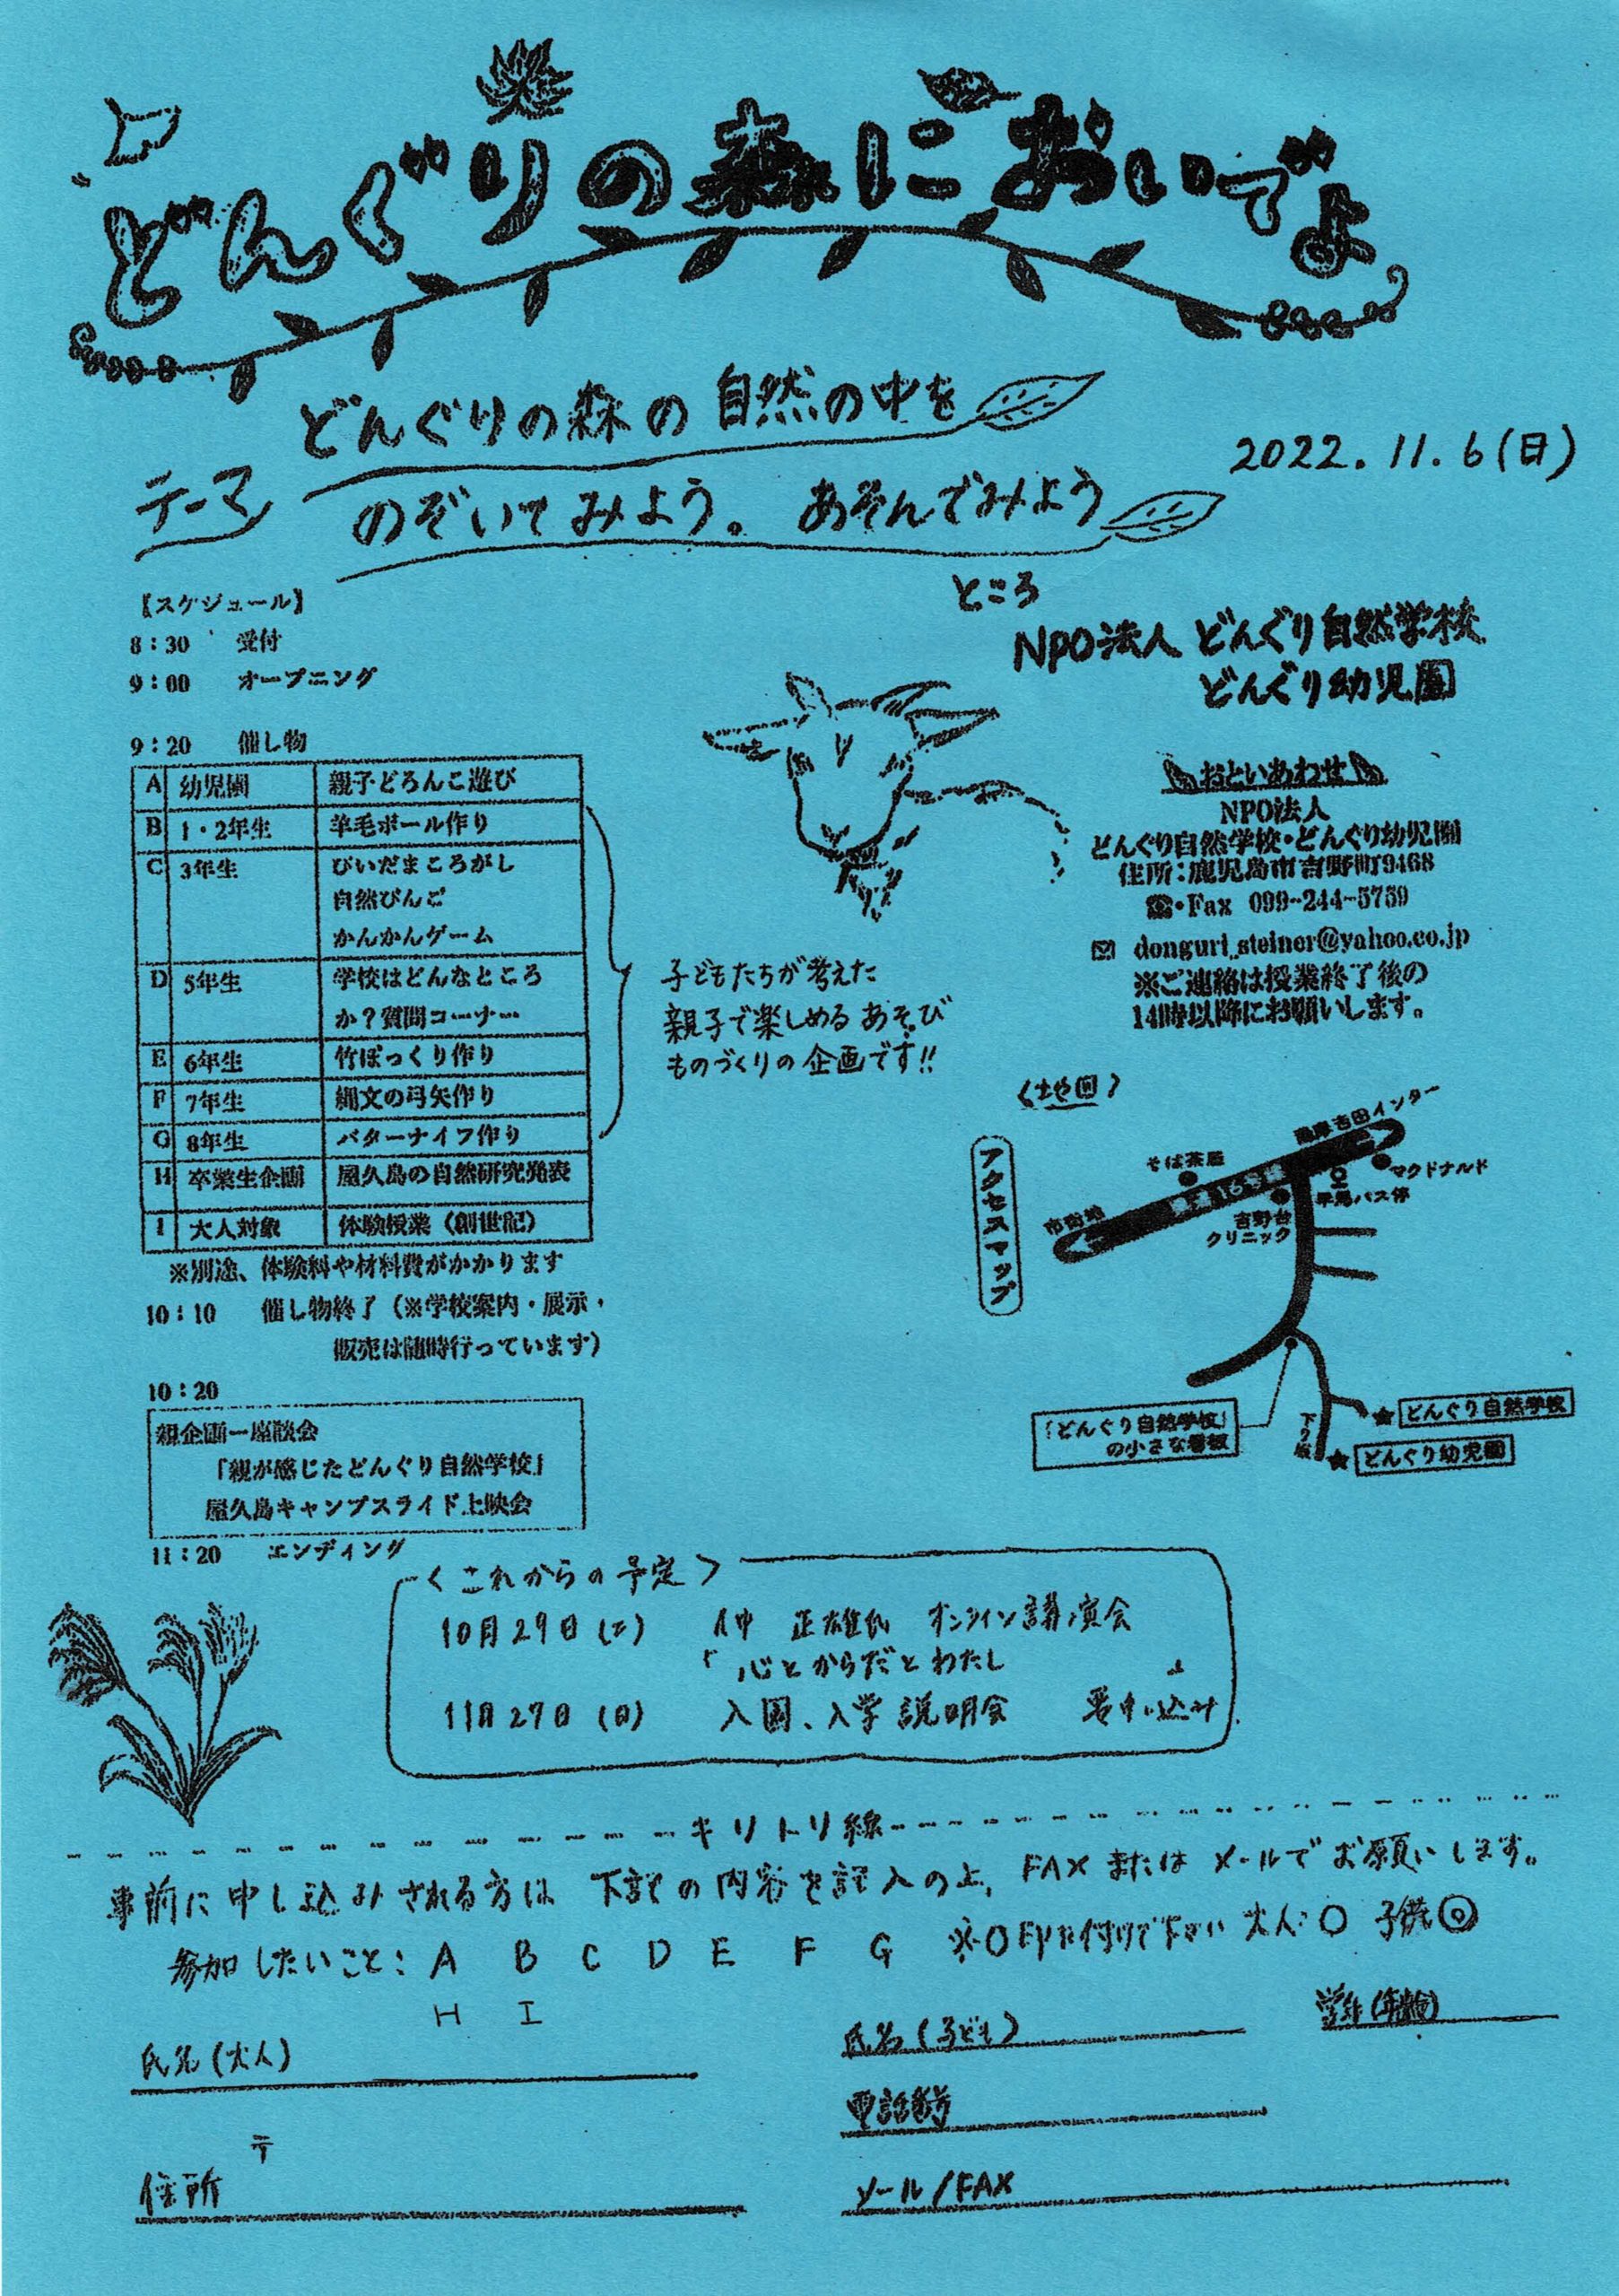 どんぐりの森においでよ
テーマ
どんぐりの森の自然の中を
のぞいてみよう。あそんでみよう
2022.11.6(日)
【スケジュール】
8：30 受付
9：00 オープニング
9：20 催し物
A 幼児園 親子どろんこ遊び
B 1・2年生 羊毛ボール作り
C 3年生 びいだまころがし
自然びんご
かんかんゲーム
D 5年生 学校はどんなところ
か？質問コーナー
E 6年生 竹ぽっくり作り
F 7年生 縄文の弓矢作り
G 8年生 バターナイフ作り
H 卒業生企画 屋久島の自然研究発表
I 大人対象 体験授業（創世記）
※別途、体験料や材料費がかかります
10：10 催し物終了（※学校案内・展示・
販売は随時行っています）
10：20
親企画ー座談会
「親が感じたどんぐり自然学校」
屋久島キャンプスライド上映会
11：20 エンディング
子どもたちが考えた
親子で楽しめるあそび
ものづくりの企画です!!
ところ
NPO法人 どんぐり自然学校
どんぐり幼児園
おといあわせ
NPO法人
どんぐり自然学校・どんぐり幼児園
住所：鹿児島市吉野町9468
☎・Fax 099-244-5759
✉ donguri_steiner@yahoo.co.jp
※ご連絡は授業終了後の
14時以降にお願いします。
〈地図〉
アクセスマップ
薩摩吉田インター
そば茶屋
マクドナルド
バス停
市街地
吉野台
クリニック
「どんぐり自然学校」
の小さな看板
下り坂
★どんぐり自然学校
★どんぐり幼児園
〈これからの予定〉
10月29日(土) 仲 正雄氏 オンライン講演会
「心とからだとわたし」
11月27日(日) 入園、入学説明会 要申し込み
キリトリ線
事前に申し込みされる方は 下記の内容を記入の上、FAXまたはメールでお願いします。
参加したいこと： A B C D E F G ※○印を付けて下さい 大人：○ 子供◎
H I
氏名(大人)
氏名(子ども)
学年(年齢)
電話番号
〒
住所
メール/FAX